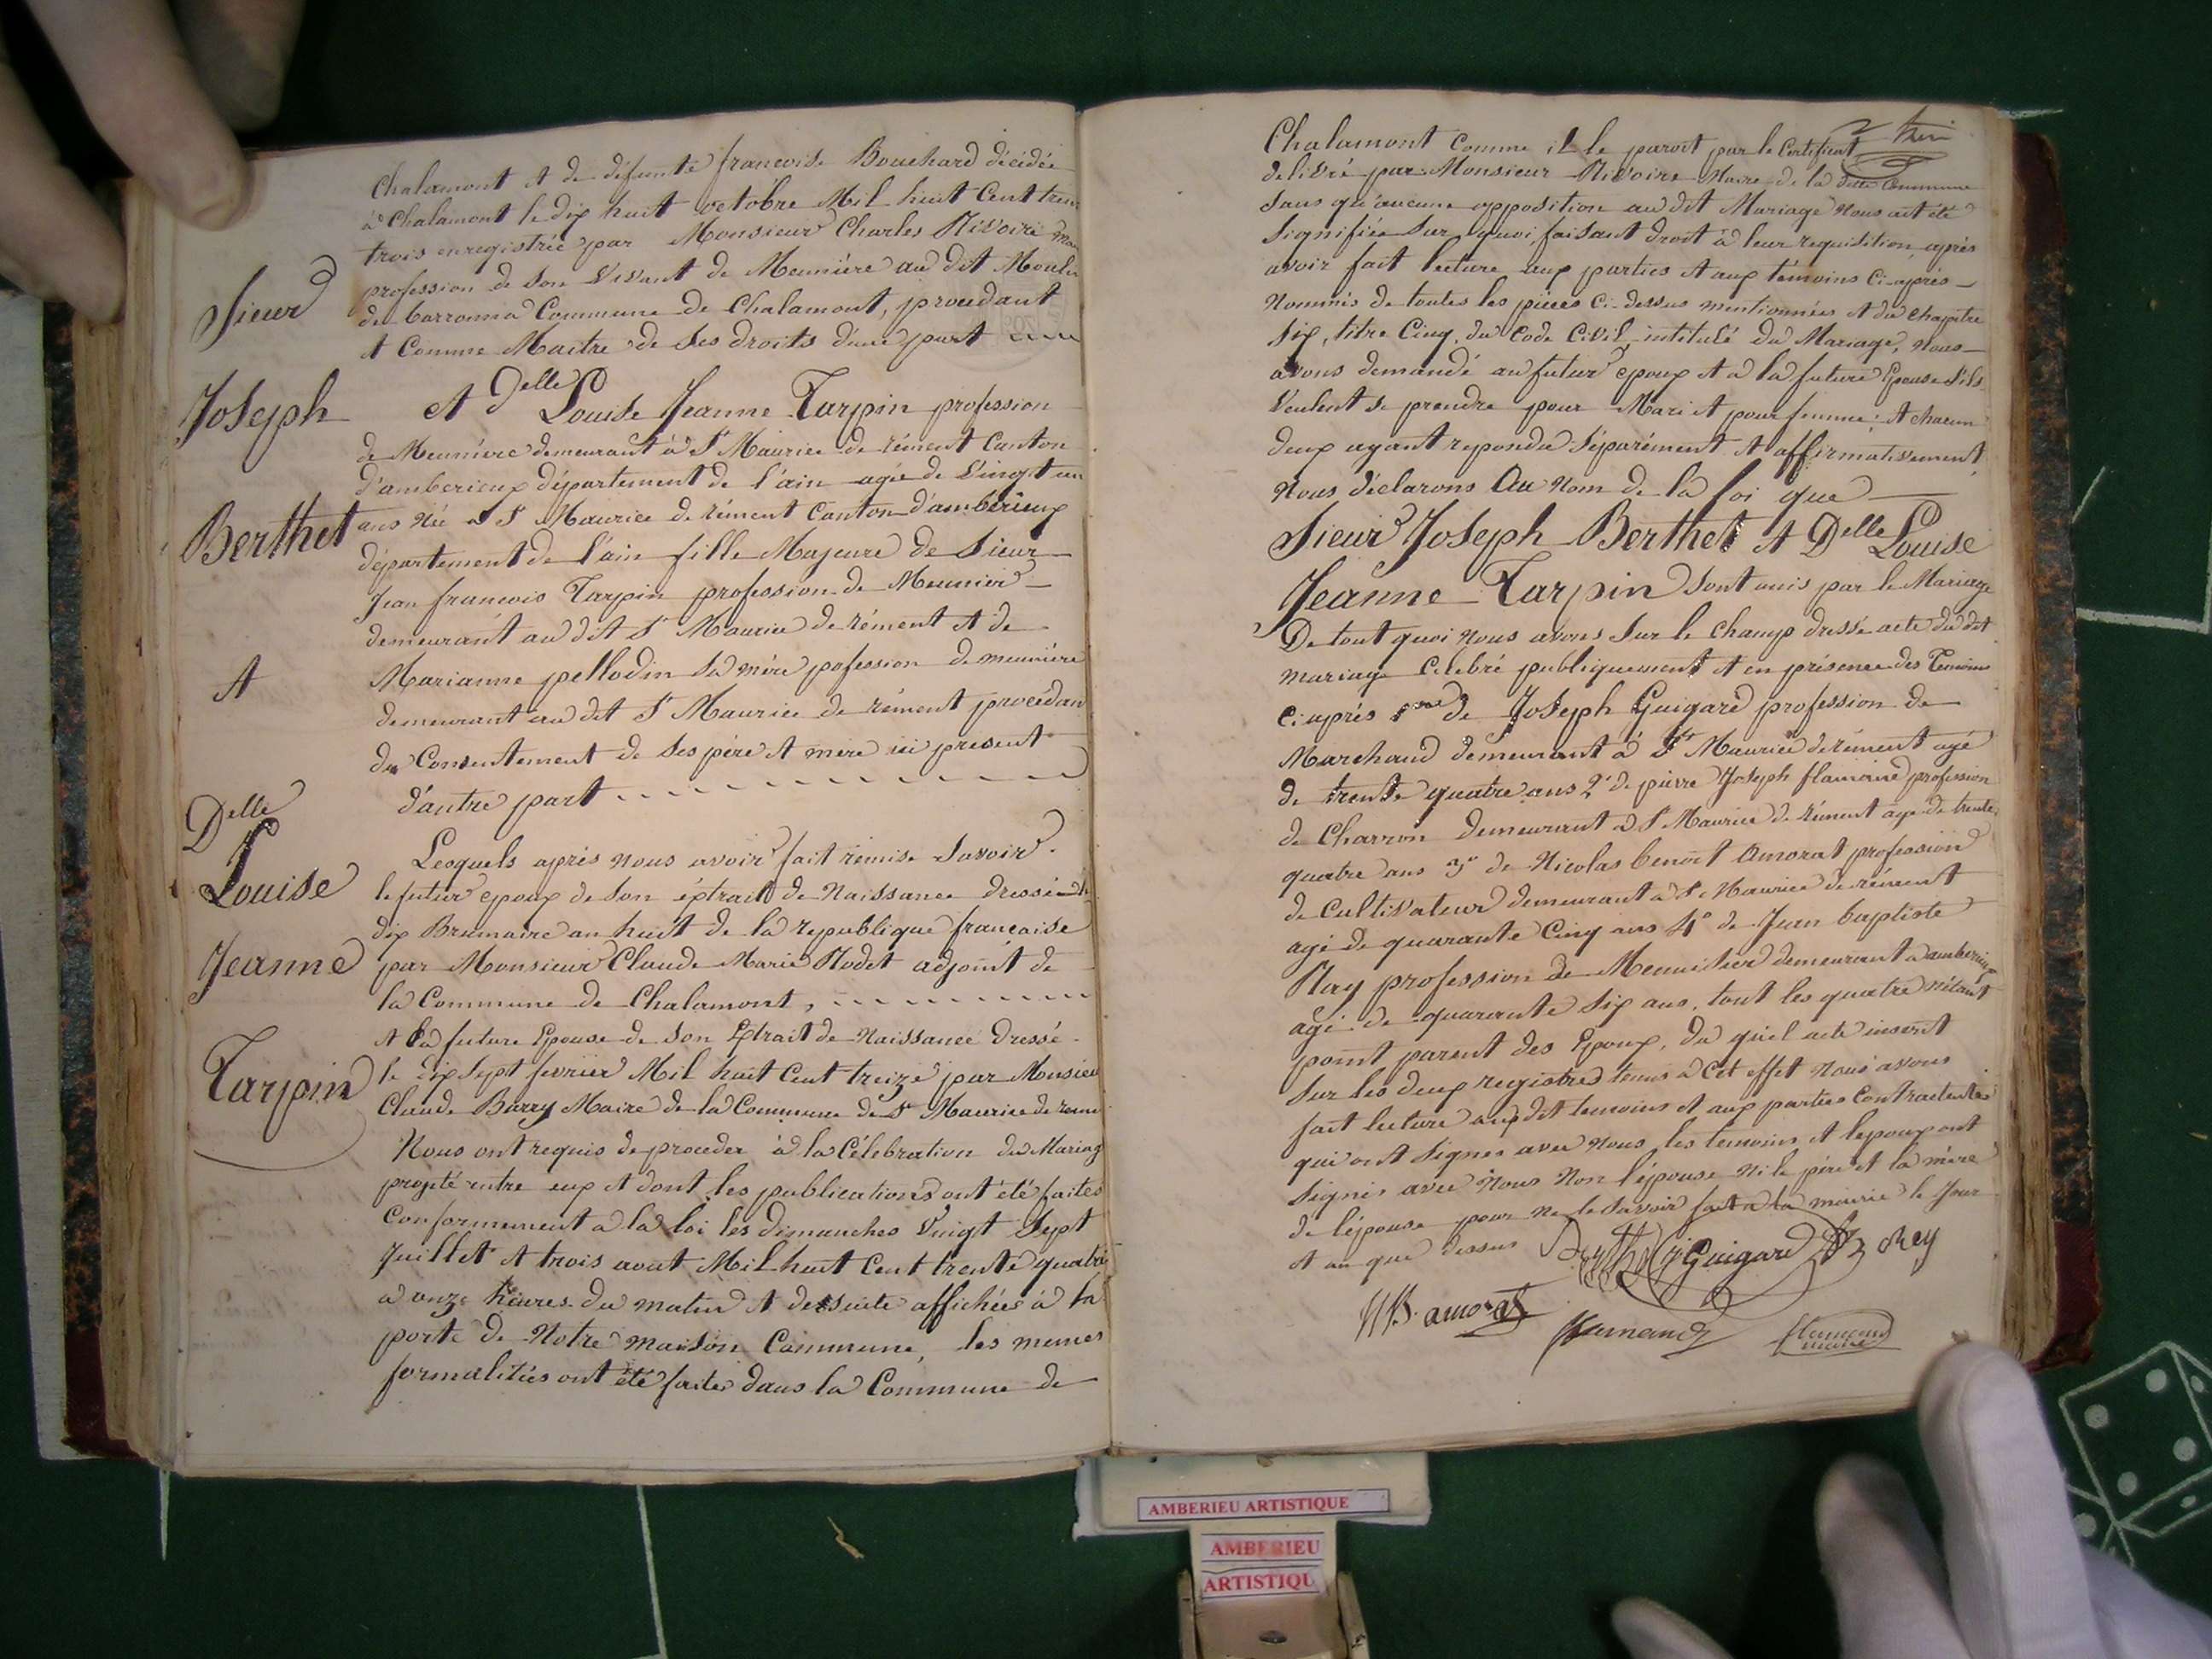 Chalamont et de défunte francoise Bouchard décédée
à Chalamont le dix huit octobre Mil huit Cent tren
trois enregistrée par Monsieur Charles Rivoire
profession de Son Vivant de Meunière au dit Moulin
de Commune de Chalamont, procedant
et Comme Maitre de Ses droits d'une part
et Delle Louise Jeanne Tarpin profession
de Meunière demeurant à St Maurice de rément Canton
d'amberieux département de l'ain agée de Vingt un
ans Née à St Maurice de rément Canton d'amberieux
département de l'ain fille Majeure de Sieur
Jean francois Tarpin profession de Meunier
demeurant au dit St Maurice de rément et de
Marianne pellodin Sa mère pofession de meunière
demeurant au dit St Maurice de rément procédan
du Consentement de Ses père et mère ici present
d'autre part
Lesquels après nous avoir fait remise Savoir.
le futur epoux de Son éxtrait de Naissance dressé le
dix Brumaire an huit de la republique francaise
par Monsieur Claude Marie Rodet adjoint de
la Commune de Chalamont,
et la future Epouse de Son Extrait de Naissance Dressé
le dix Sept fevrier Mil huit Cent treize par Monsieu
Claude Barry Maire de la Commune de St Maurice de rem
Nous ont requis de proceder à la Célebration du Mariag
projeté entre eux et dont les publications ont été faites
Conformement a la loi les dimanches Vingt Sept
Juillet et trois aout Mil huit Cent trente quatre
a onze heures du matin et desuite affichées à la
porte de Notre maison Commune, les memes
formalities ont été faites dans la Commune de
Sieur
Joseph
Berthet
et
Delle
Louise
Jeanne
Tarpin
Chalamont Comme il le paroit par le Certificat
delivré par Monsieur Rivoire Maire de la dette Commune
Sans qu'aucune opposition au dit Mariage Nous ait été
Signifiée Sur quoi, faisant droit à leur requisition, après
avoir fait lecture aux parties et aux témoins Ci-après
Nommés de toutes les pièces Ci-dessus mentionnées et du Chapitre
Six, titre Cinq, du Code Civil, intitulé du Mariage, Nous
avons demandé au futur epoux et à la future Epouse S'ils
Veulent se prendre pour Mari et pour femme; et chacun
deux ayant repondu Séparément et affirmativement,
Nous déclarons Au Nom de la Loi que
Sieur Joseph Berthet et Delle Louise
Jeanne Tarpin Sont unis par le Mariage
De tout quoi Nous avons Sur le Champ dressé acte du dit
mariage Celebré publiquement et en présence des Temoins
Ci après de Joseph Guigard profession de
Marchand demeurant à St Maurice de rément agé
de trente quatre ans 2° de pierre Joseph profession
de Charron Demeurant à St Maurice de rément agé de trente
quatre ans 3° de Nicolas benoit Amorat profession
de Cultivateur demeurant à St Maurice de rément
agé de quarante Cinq ans 4° de Jean baptiste
Ray profession de Menuisier demeurant à amberieux
agé de quarante Six ans, tout les quatre n'étant
point parent des Epoux, du quel acte inscrit
Sur les deux registres tenus à Cet effet Nous avons
fait lecture aux dit temoins et aux parties Contractantes
qui ont Signés avec Nous les temoins et lepoux ont
Signés avec Nous Non l'épouse ni le père et la mère
de l'épouse pour ne le Savoir fait à la mairie le Jour
et an que dessus Guigard Rey
amorat
AMBERIEU ARTISTIQUE
AMBERIEU
ARTISTIQU